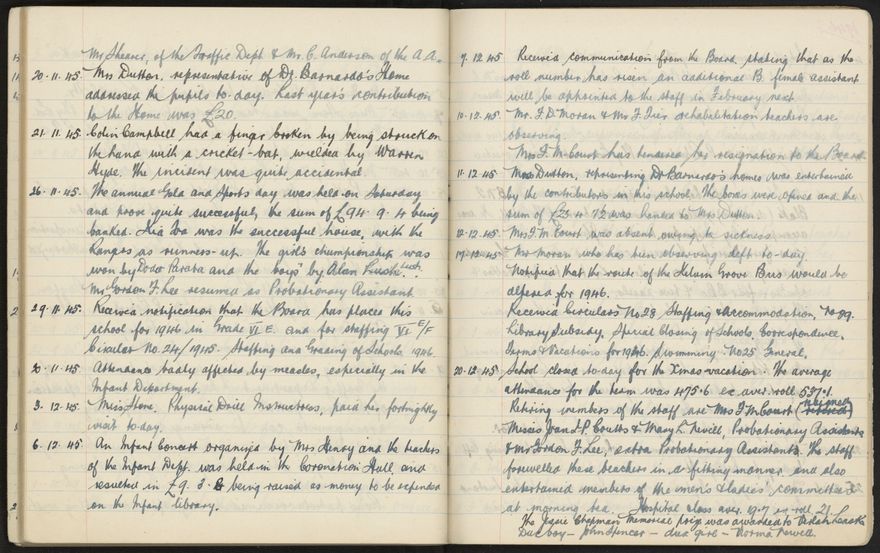 Mr Shearer, of the Traffic Dept & Mr C. Anderson of the A.A.
20.11.45. Mrs Dutton, representative of Dr. Barnardo's Home
addressed the pupils to-day. Last year's contribution
to the Home was £20.
21.11.45. Colin Campbell had a finger broken by being struck on
the hand with a cricket-bat, wielded by Warren
Hyde. The incident was quite accidental.
26.11.45. The annual Gala and Sports day was held on Saturday
and prove quite successful, the sum of £94. 9. 4 being
banked. was the successful house, with the
Rangers as runners-up. The girls championship was
won by and the boys' by Alan
Mr Gordon F. Lee resumed as Probationary Assistant.
29.11.45. Received notification that the Board has placed this
school for 1946 in Grade VI E. and for staffing VI E/F
Circular No. 24/1945. Staffing and Grading of Schools 1946.
30.11.45 Attendance badly affected by measles, especially in the
Infant Department.
3.12.45 Miss Stone, Physical Drill Instructress, paid her fortnightly
visit to-day.
6.12.45 An Infant Concert organised by Mrs Henry and the teachers
of the Infant Dept. was held in the Coronation Hall, and
resulted in £9. 3. being raised as money to be expended
on the Infant library.
7.12.45 Received communication from the Board stating that as the
roll number has risen an additional B. female assistant
will be appointed to the staff in February next
10.12.45. Mr. J. D. Moran & Mr J. rehabilitation teachers are
observing.
Mrs J. McCourt has tendered her resignation to the Board.
11.12.45 Mrs Dutton, representing Dr Barnardo's homes was entertained
by the contributors in his school. The boxes were opened and the
sum of £23. 4. 7½ was handed to Mrs Dutton.
12.12.45 Mrs J. McCourt was absent owing to sickness.
17.12.45 Mr Moran who has been observing left to-day
Notified that the route of the Grove Bus would be
altered for 1946.
Received Circulars No. 28 Staffing & Accommodation, No 29.
Library Subsidy, Special Closing of Schools, Correspondence,
Terms & Vacations for 1946. Swimming. No 25 General,
20.12.45 School closed to-day for the Xmas vacation. The average
attendance for the term was 475.6 ex aver. roll 537.1.
resigned
Retiring members of the staff are Mrs J McCourt (retired)
Misses Jean J. P. Coutts & Mary L. Nevill, Probationary Assistants
& Mr Gordon F. Lee, extra Probationary Assistant. The staff
farewelled these teachers in a fitting manner and also
entertained members of the men's & ladies' committees
at morning tea. Hospital class aver. 19.7 ex roll 21.
The Jessie Chapman Memorial prize was awarded to
Dux boy - John Spencer - dux girl - Norma Powell.